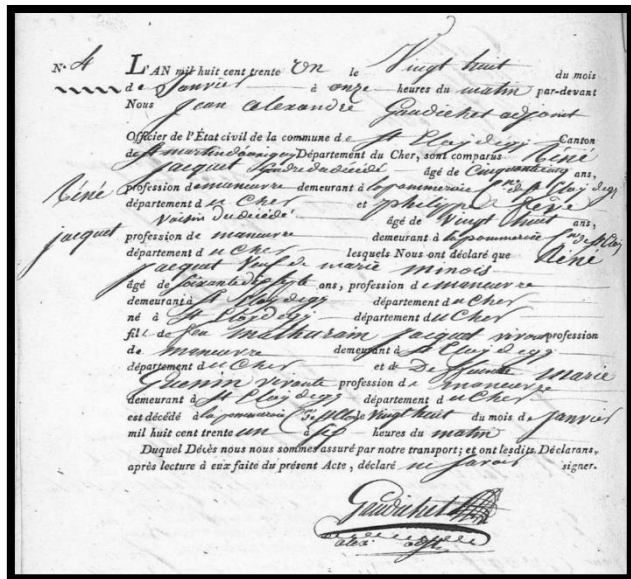 N.º 4 L'AN mil huit cent trente un le Vingt huit du mois
de Janvier à onze heures du matin par-devant
Nous Jean alexandre Gaudichet adjoint
Officier de l'État civil de la commune de St Eloy de gy Canton
de St martin d'auxigny Département du Cher, sont comparus Réné
jacquet âgé de Cinquante cinq ans,
profession de manœuvre demeurant à la pommeraie Cne de St Eloy de gy
département du Cher et philippe
voisin du décédé âgé de vingt huit ans,
profession de manœuvre demeurant à la pommeraie
département du Cher lesquels Nous ont déclaré que Réné
jacquet veuf de marie minois
âgé de soixante dix sept ans, profession de manœuvre
demeurant à St Eloy de gy département du Cher
né à St Eloy de gy département du Cher
fils de feu mathurain jacquet vivant profession
de manœuvre demeurant à St Eloy de gy
département du Cher et de Defuinte marie
Guenin vivante profession de manœuvre
demeurant à St Eloy de gy département du Cher
est décédé à la pommeraie le vingt huit du mois de janvier
mil huit cent trente un à six heures du matin
Duquel Décès nous nous sommes assuré par notre transport; et ont lesdits Déclarans,
après lecture à eux faite du présent Acte, déclaré ne savoir signer.
Réné
jacquet
Gaudichet
alex. adjt